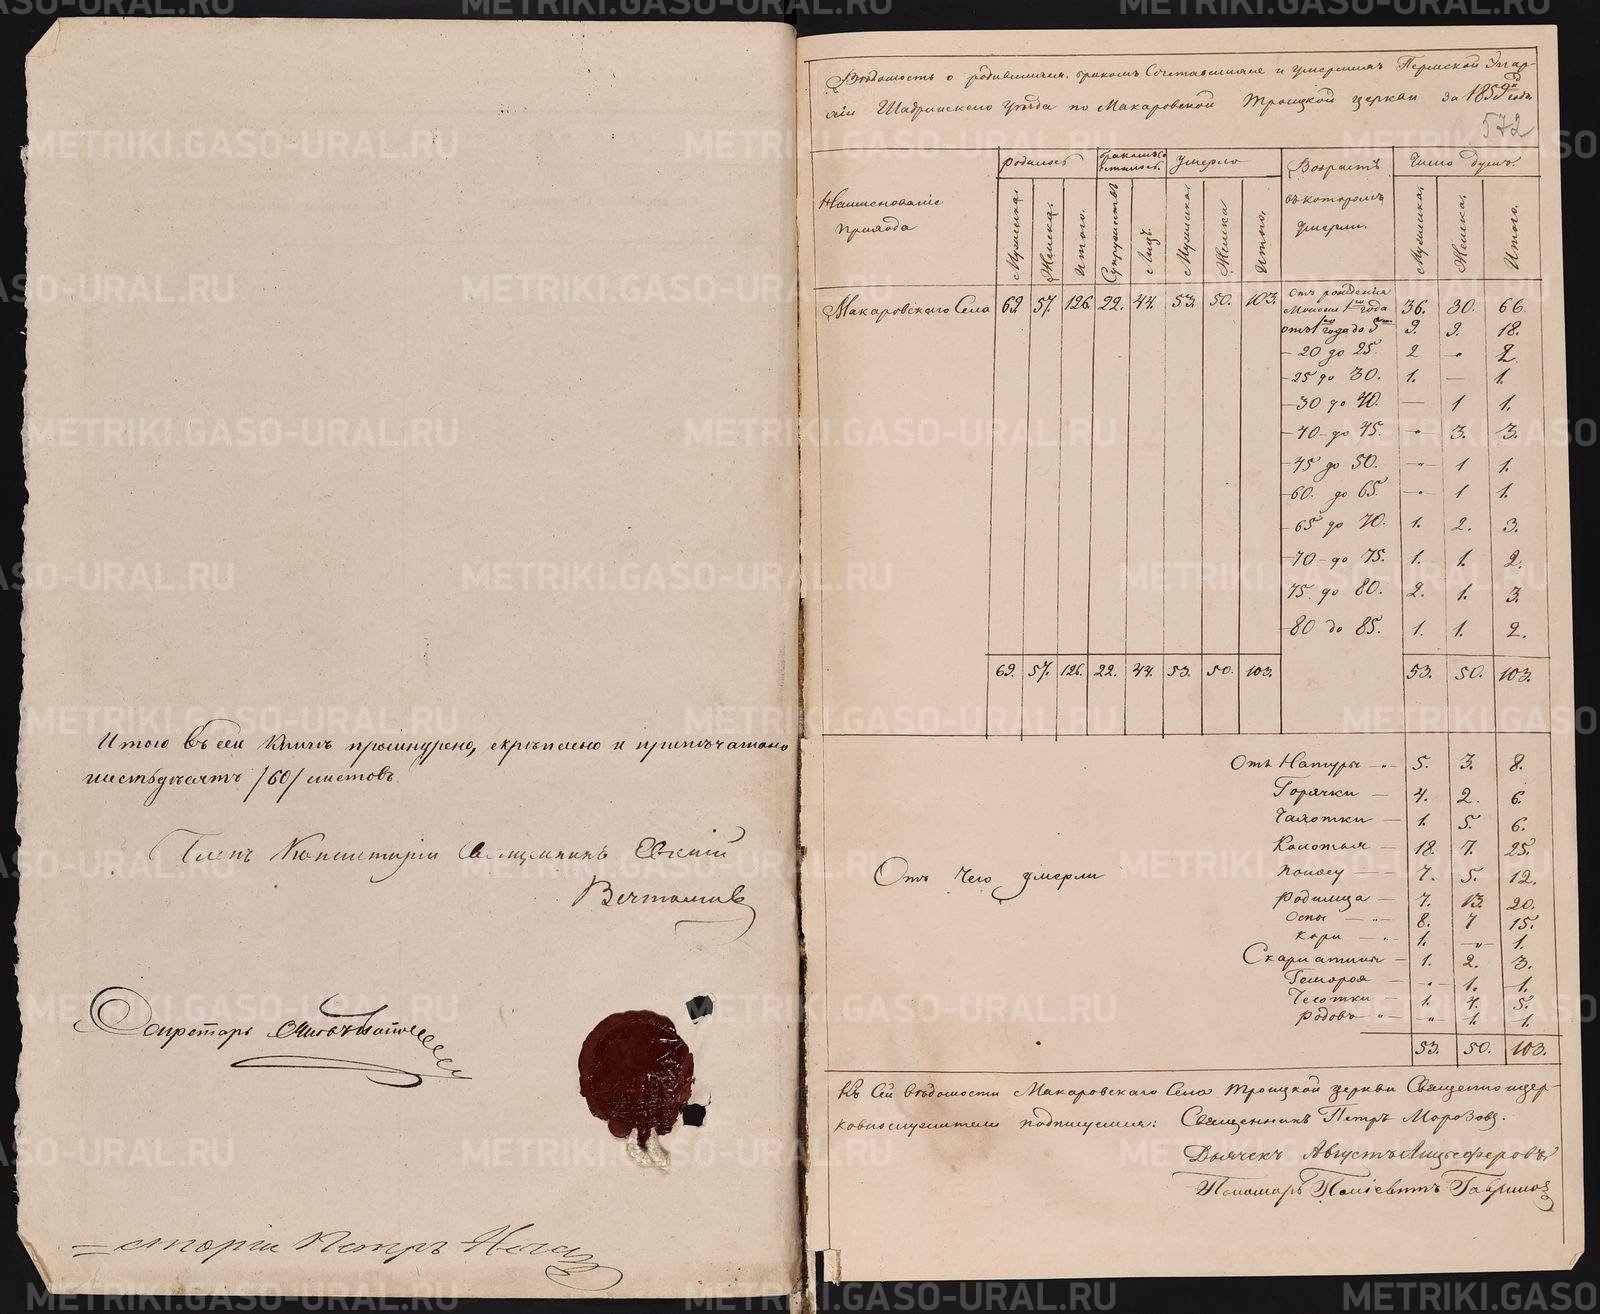 Итого въ сей книгѣ прошнурено, скрѣплено и припечатано
шестьдесятъ /60/ листовъ
Членъ Консисторіи Священникъ Евгеній
Секретарь
Петръ
Вѣдомость о родившихся, бракомъ сочетавшихся и умершихъ Пермской Епар-
хіи Шадринскаго уѣзда по Макаровской Троицкой церкви за 1859й годъ
572
Наименованіе прихода
родилось
бракомъ сочеталось
умерло
Возрастъ въ которомъ умерли.
Число душъ.
Мужеска. Женска. Итого. Супружествъ Лицъ. Мужеска. Женска Итого. Мужеска. Женска. Итого.
Макаровскаго Села 69. 57. 126. 22. 44. 53. 50. 103.
отъ рожденія
Моложе 1го года 36. 30. 66.
отъ 1го года до 5ти 9. 9. 18.
– 20 до 25. 2 – 2.
– 25 до 30. 1. — 1.
– 30 до 40. — 1 1.
– 40 до 45. – 3. 3.
– 45 до 50. – 1 1.
– 60. до 65. – 1 1.
– 65 до 70. 1. 2. 3.
– 70 до 75. 1. 1. 2.
75. до 80. 2. 1. 3.
– 80 до 85. 1. 1. 2.
69. 57. 126. 22. 44. 53. 50. 103. 53. 50. 103.
Отъ чего умерли
Отъ Натуры – 5. 3. 8.
Горячки – 4. 2. 6.
Чахотки – 1. 5. 6.
Колотья – 18. 7. 25.
Поносу – 7. 5. 12.
Родимца – 7. 13. 20.
Оспы – 8. 7 15.
Кори – 1. – 1.
Скарлатины – 1. 2. 3.
Гемороя – – 1. 1.
Чесотки – 1. 4. 5.
Родовъ – – 1. 1.
53. 50. 103.
Къ сей вѣдомости Макаровскаго Села Троицкой церкви Священноцер-
ковнослужители подписуемся: Священникъ Петръ Морозовъ.
Дьячекъ Августъ
Пономарь Гавриловъ
METRIKI.GASO-URAL.RU